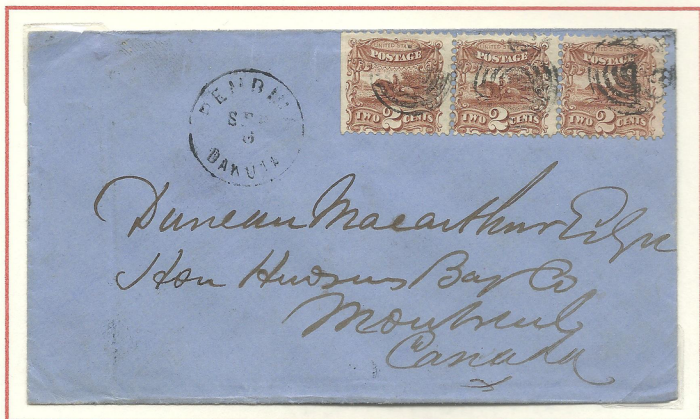 UNITED STATES
POSTAGE
TWO 2 CENTS
UNITED STATES
POSTAGE
TWO 2 CENTS
POSTAGE
TWO 2 CENTS
PEMBINA
SEP
DAKOTA
Duncan Macarthur Esqr
Hon Hudsons Bay Co
Montreal
Canada